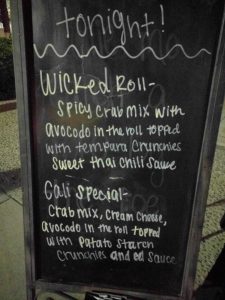 tonight!
Wicked Roll-
Spicy Crab mix with
avocodo in the roll topped
with tempura Crunchies
Sweet thai chili Sauce
Gali Special-
Crab mix, Cream Cheese,
avocodo in the roll topped
with Patato Starch
Crunchies and eel Sauce